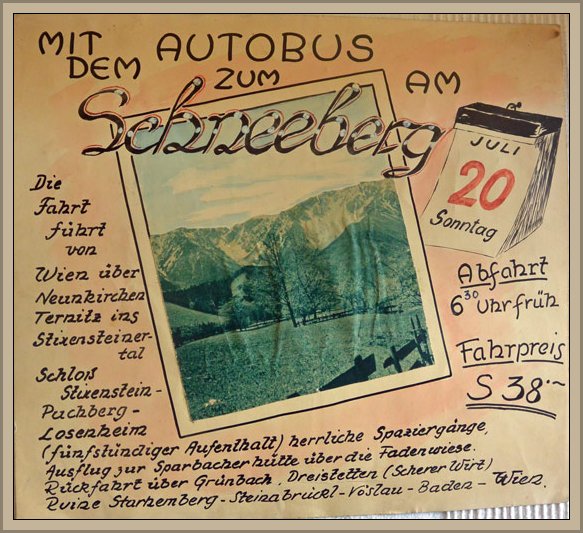 MIT DEM AUTOBUS
ZUM AM
Schneeberg
JULI
20
Sonntag
Abfahrt
6³⁰ Uhr früh
Fahrpreis
S 38.–
Die
Fahrt
führt
von
Wien über
Neunkirchen
Ternitz ins
Stixensteiner-
tal
Schloß
Stixenstein-
Puchberg-
Losenheim
(fünfstündiger Aufenthalt) herrliche Spaziergänge,
Ausflug zur Sparbacherhütte über die Fadenwiese.
Rückfahrt über Grünbach, Dreistetten (Scherer Wirt)
Ruine Starhemberg-Steinabrückl-Vöslau-Baden-Wien.